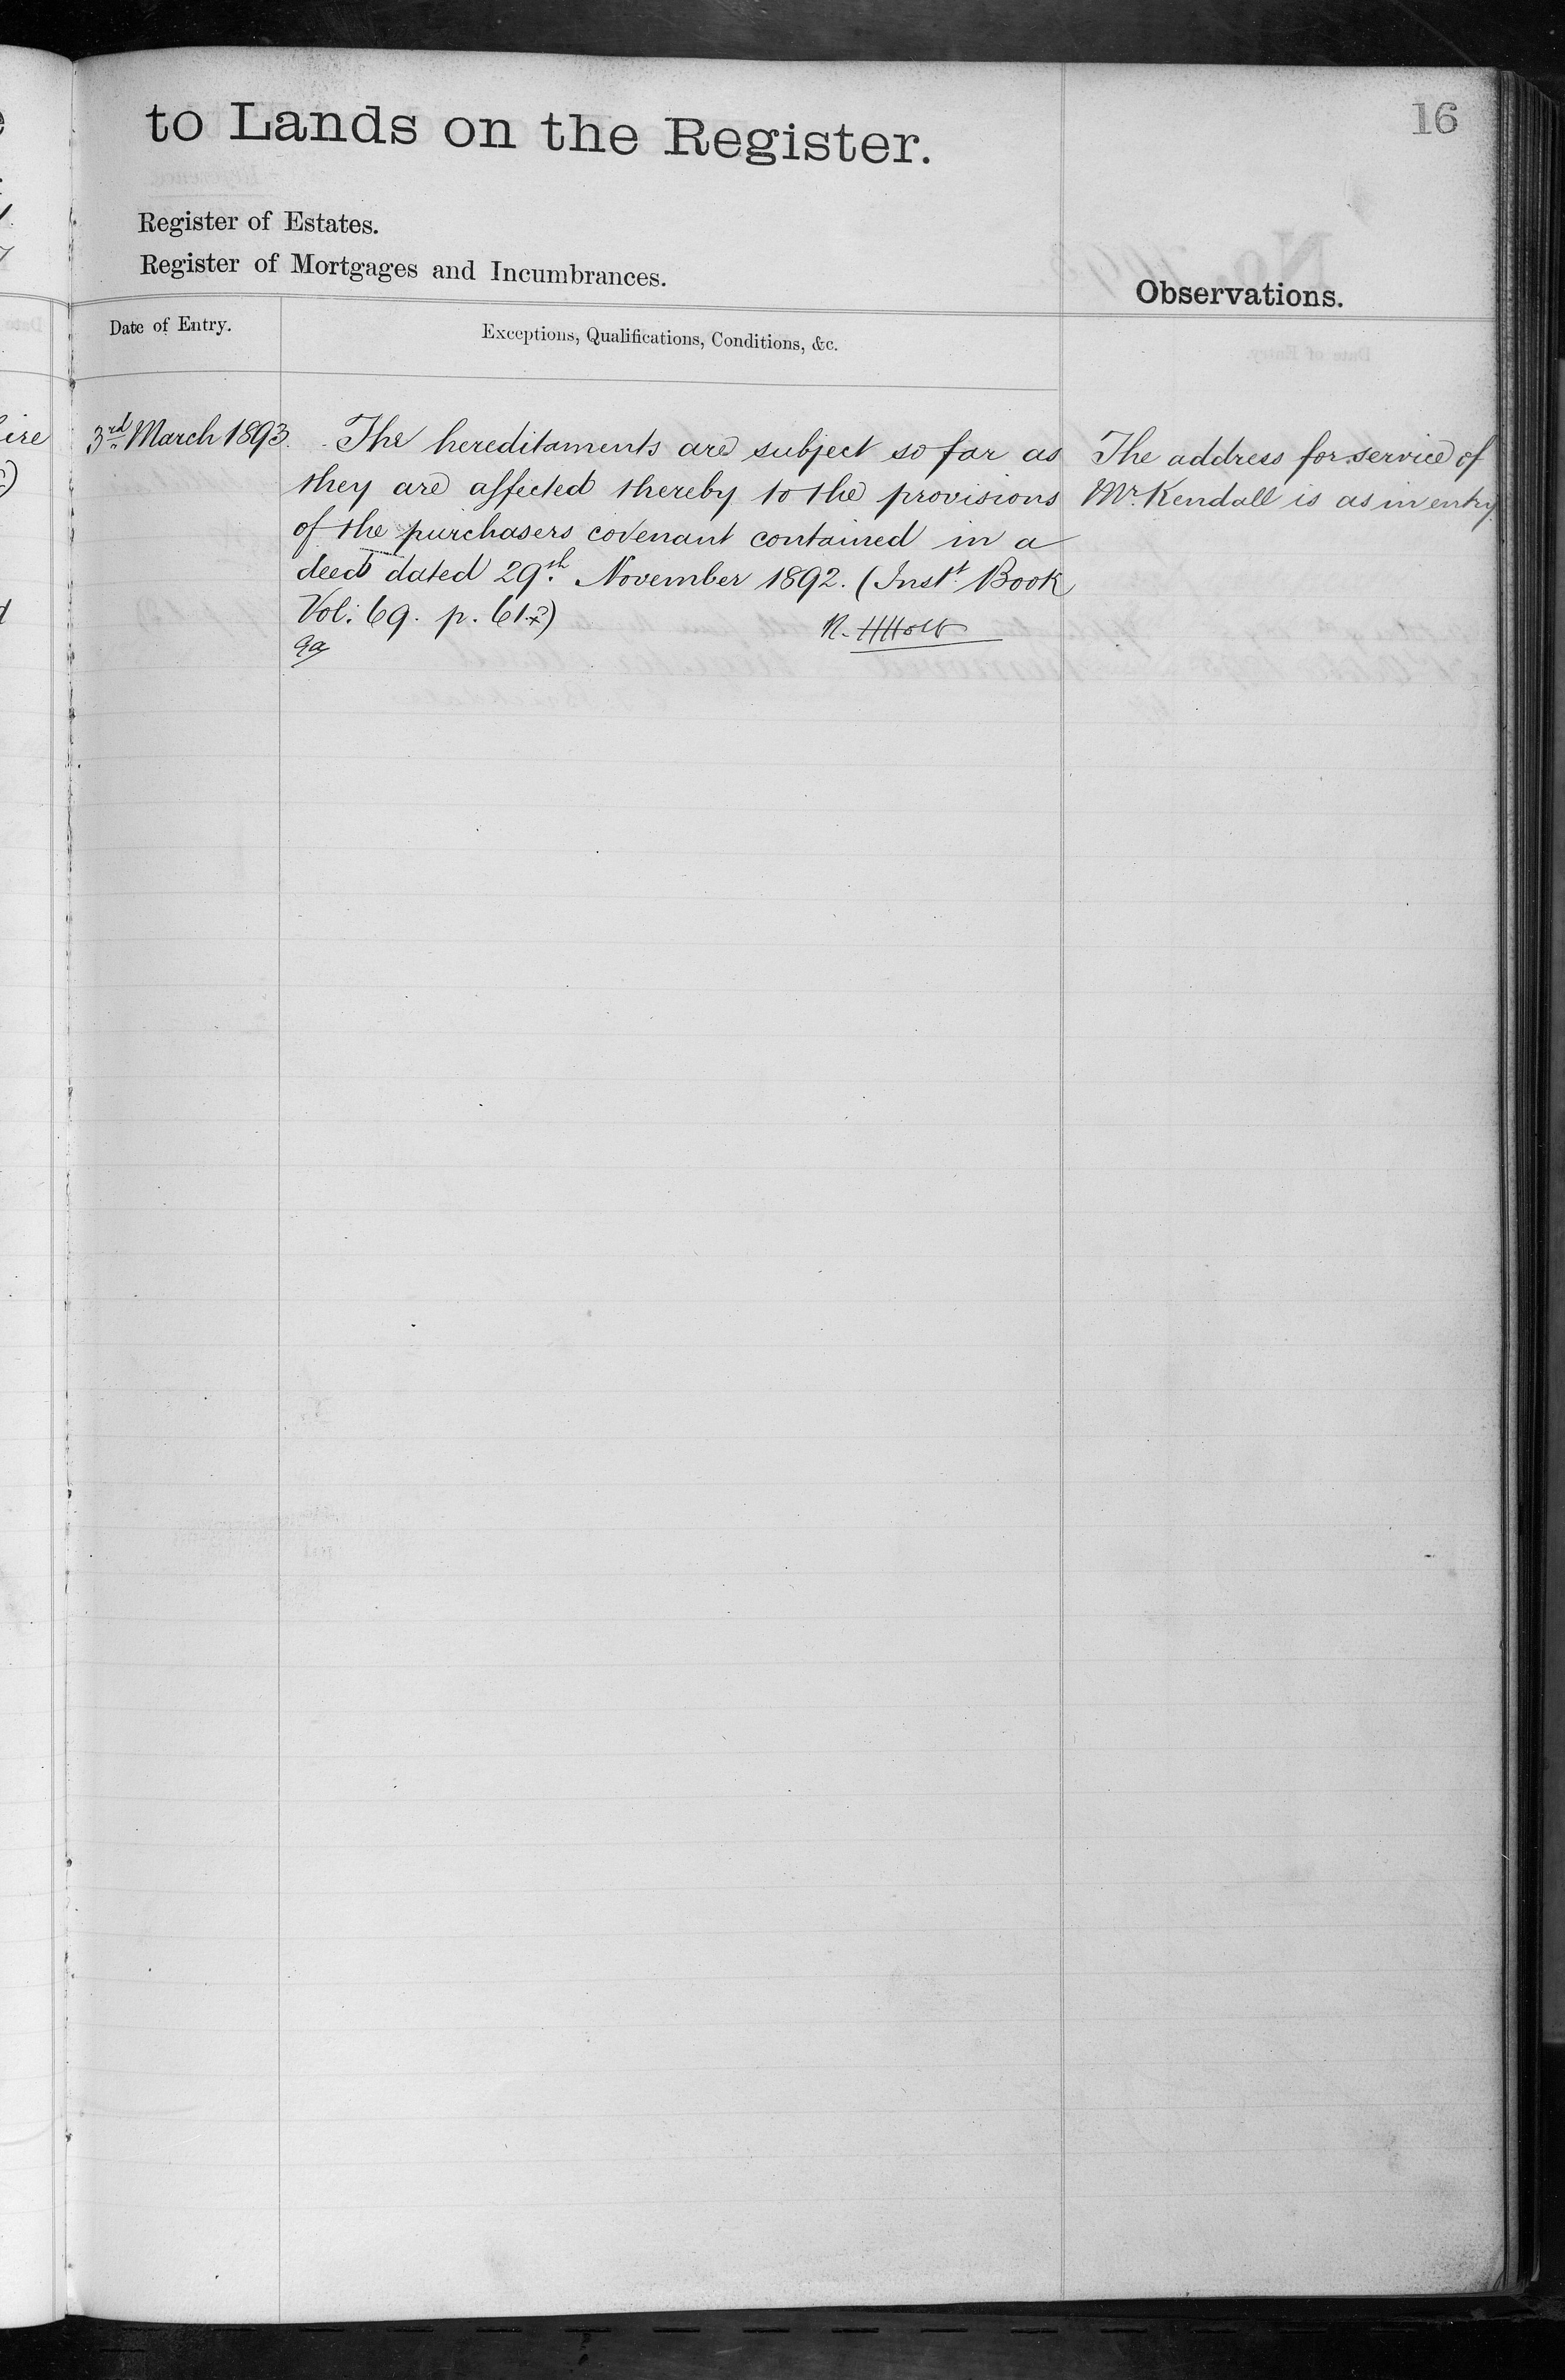 16
to Lands on the Register.
Register of Estates.
Register of Mortgages and Incumbrances.
Observations.
Date of Entry.
Exceptions, Qualifications, Conditions, &c.
3rd March 1893.
The hereditaments are subject so far as
they are affected thereby to the provisions
of the purchasers covenant contained in a
deed dated 29th November 1892. (Instt. Book
Vol: 69. p. 61
R. H Holt
The address for service of
Mr. Kendall is as in entry